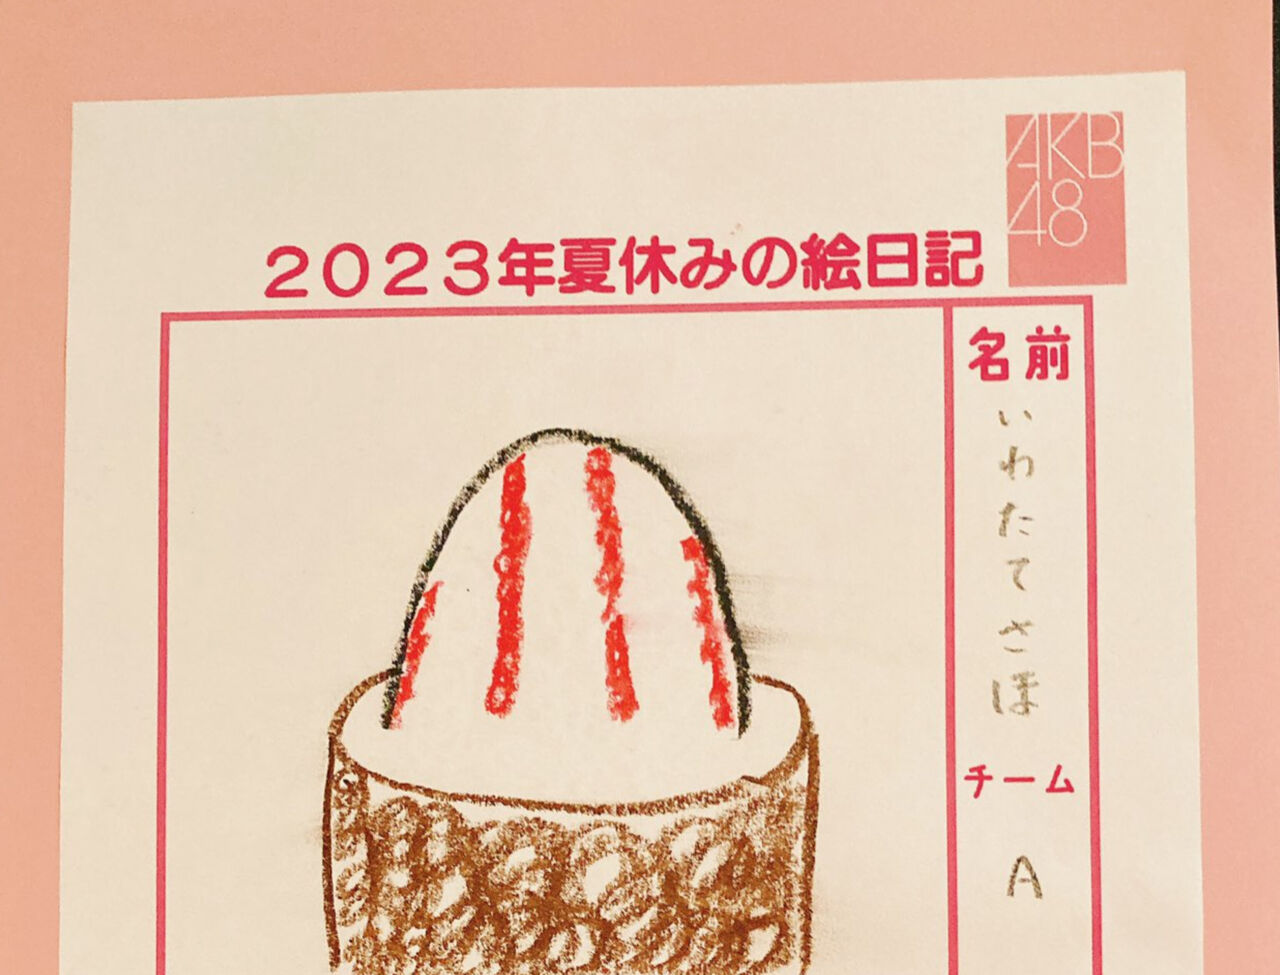 AKB
48
2023年夏休みの絵日記
名前
いわたてさほ
チーム
A